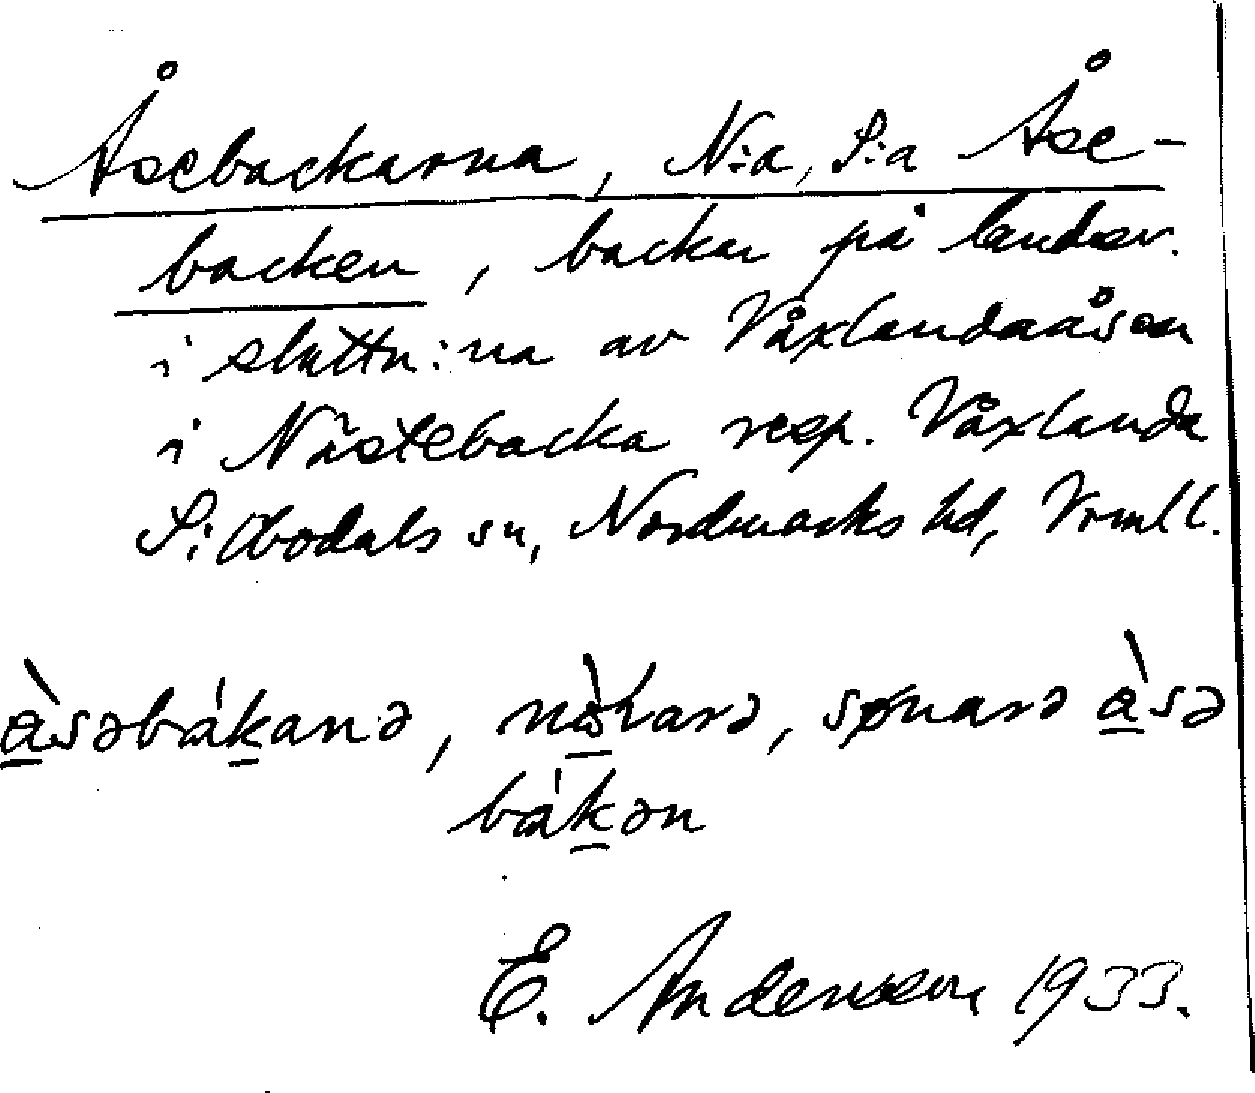 Åsebackarna, N:a, S:a Åse-
backen, backar på landsv.
i sluttn:na av Våxlandaåsen
i Nästebacka resp. Våxlanda
Silbodals sn, Nordmarks hd, Vrml l.
à̠səbák̠anə, nò̠ɹarə, sønarə à̠sə
bák̠ən
E. Andersson 1933.